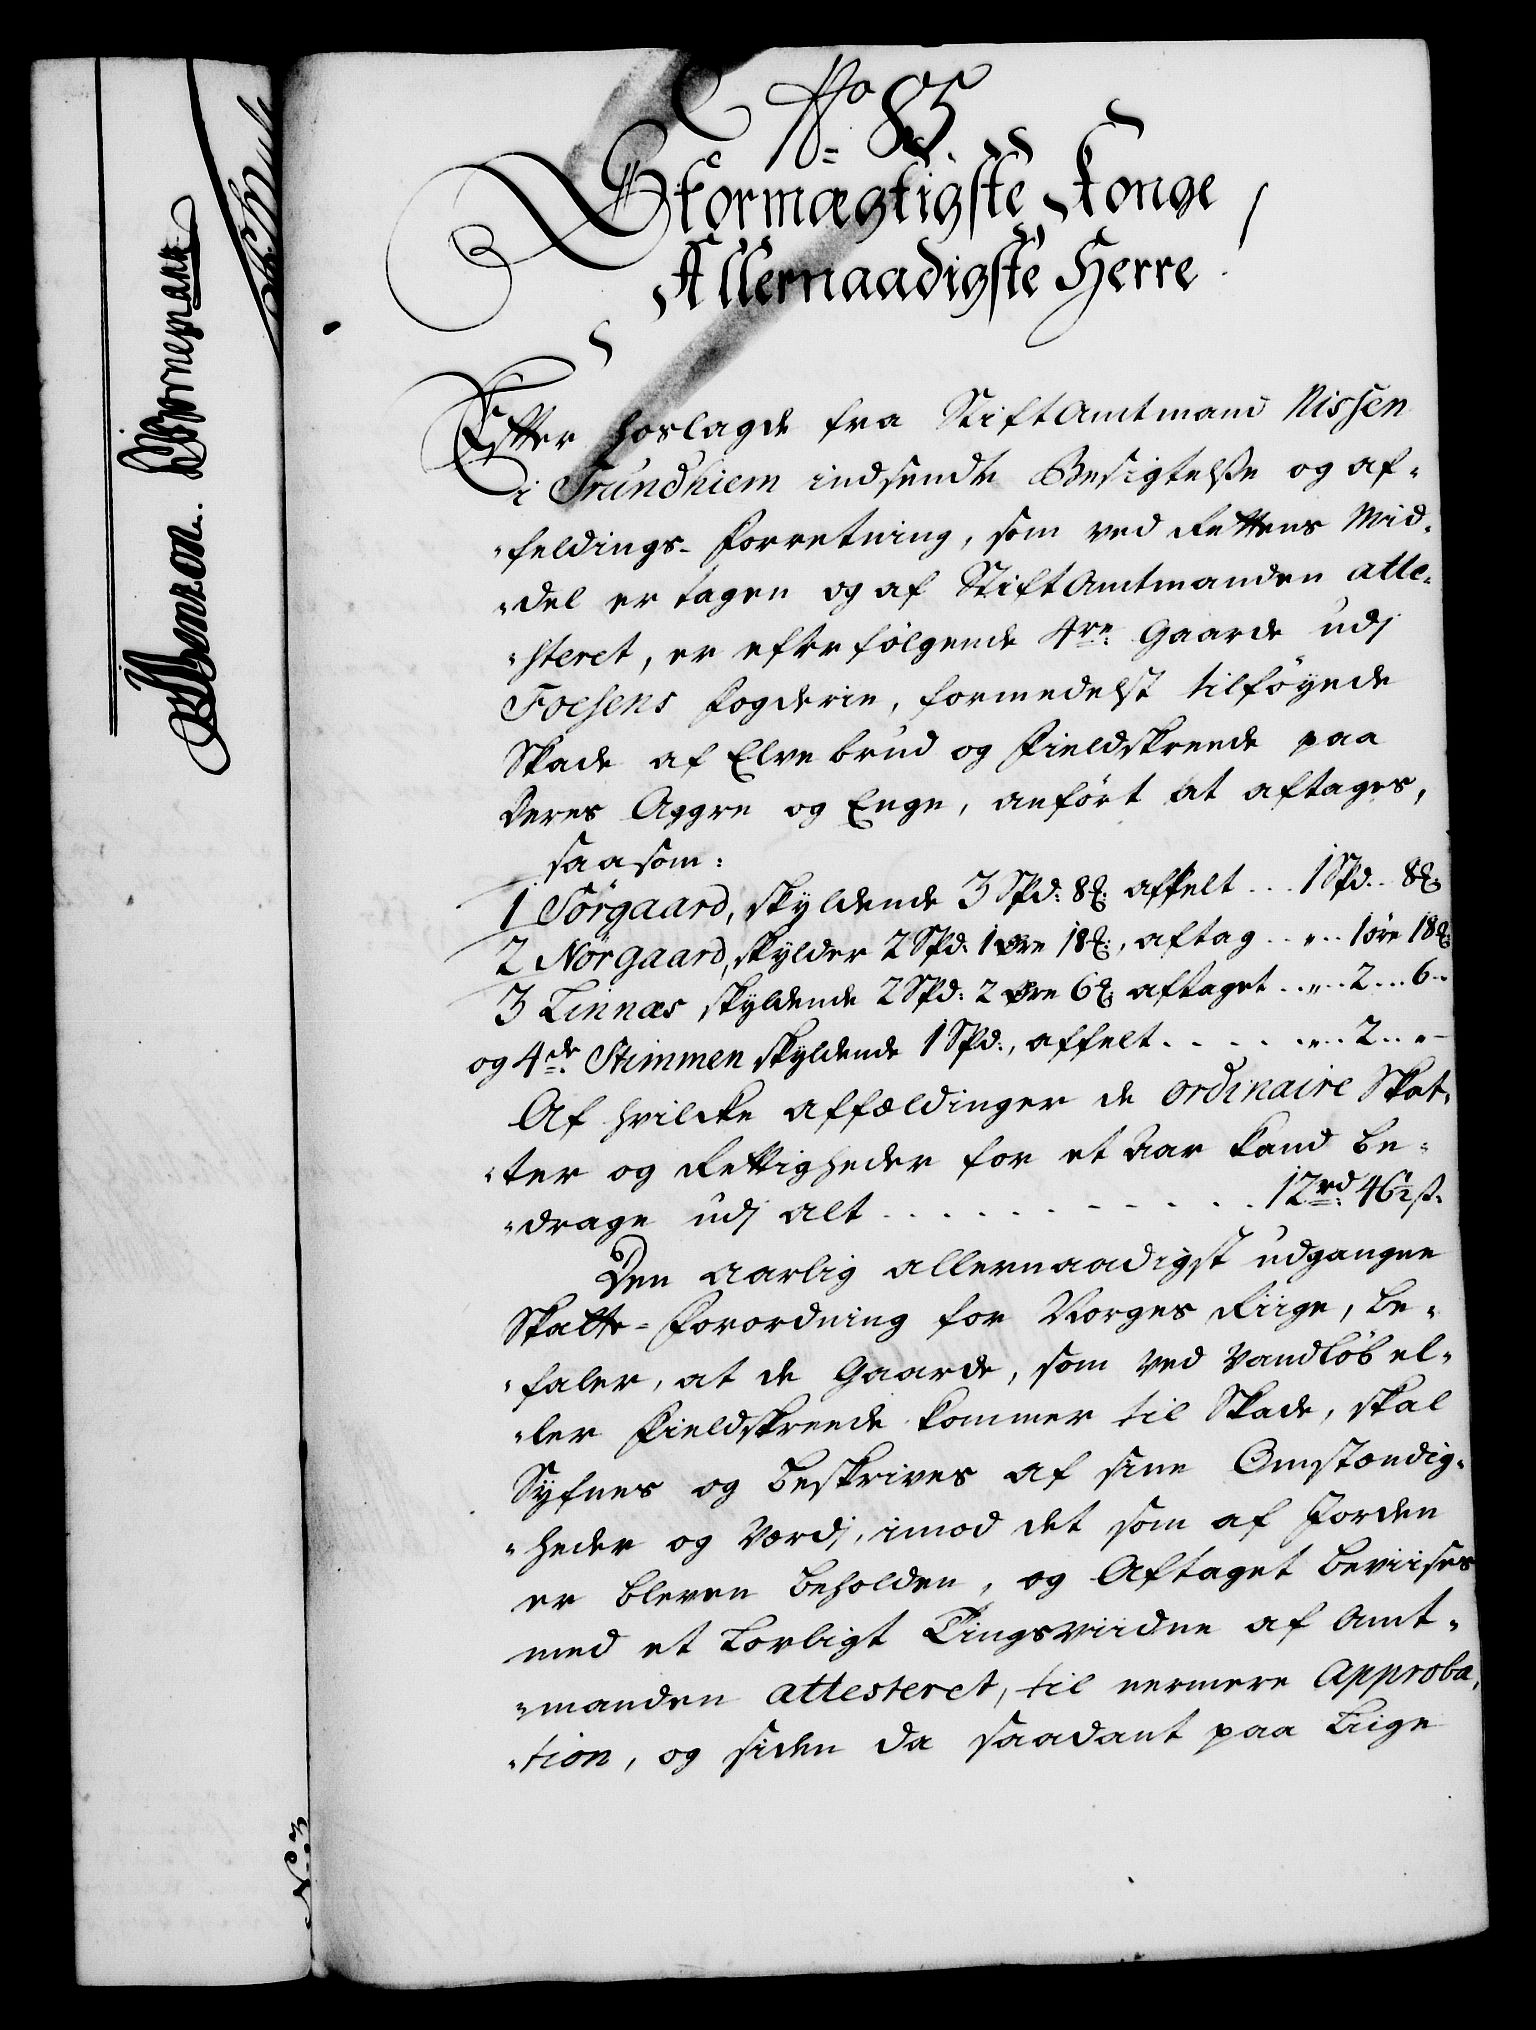 No. 85.
Stormægtigste Konge
Allernaadigste Herre
Efter hoslagde fra Stiftamtmand Nissen
i Trundhiem indsendte Besigtelsse og af-
feldings-Forretning, som ved Rettens Mid-
del er tagen og af Stiftamtmanden atte-
steret, er efterfølgende 4re Gaarde udj
Foesens Fogderie, formedelst tilføyede
Skade af Elvebrud og Fieldskreede paa
deres Aggre og Enge, anført at aftages,
saasom:
1 Sörgaard, skyldende 3 Spd: 8 [mk]: affelt . . . 1 Spd. . 8 [mk]:
2 Nörgaard, skylder 2 Spd: 1 øre 18 [mk]:, aftag . . „ . . 1 öre 18 [mk]:
3 Linnæs skyldende 2 Spd: 2 øre 6 [mk]: aftaget . . „ . . 2 . . . 6 -
og 4de Stimmen skyldende 1 Spd:, affelt . . . . . „ . . 2 . . „ -
Af hvilcke affældinger de ordinaire Skat-
ter og Rettigheder for et Aar kand be-
drage udj alt . . . . . . . . . . 12rd: 46½ s.
Den aarlig allernaadigst udgangne
Skatte-Forordning for Norges Riige, be-
faler, at de Gaarde, som ved Vandløb el-
ler Fieldskreede kommer til Skade, skal
Syfnes og beskrives af sine Omstændig-
heder og Værdj, imod det som af Jorden
er bleven beholden, og Aftaget beviises
med et Lovligt Tingsviidne af Amt-
manden attesteret, til nermere Approba-
tion, og siden da saadant paa Liige
Benzon. Bornemann
No 3